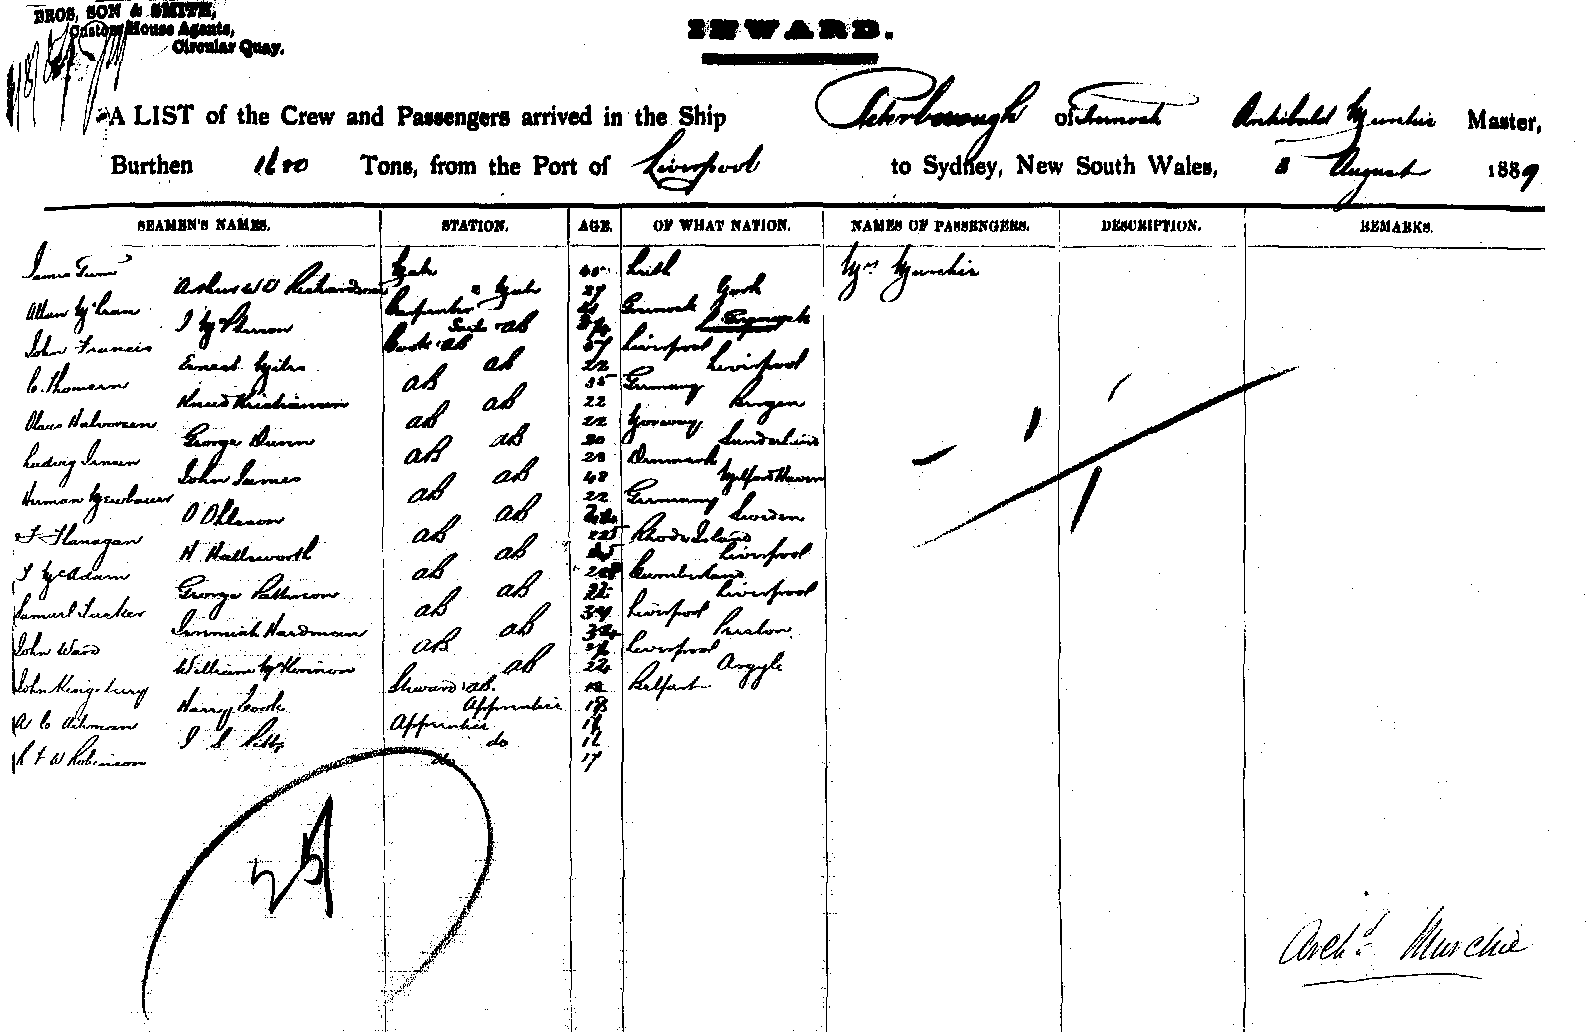 BROS, SON & SMITH,
Custom House Agents,
Circular Quay.
INWARD.
A LIST of the Crew and Passengers arrived in the Ship Peterborough of Greenock Archibald Murchie Master,
Burthen 1680 Tons, from the Port of Liverpool to Sydney, New South Wales, August 1889
SEAMEN'S NAMES. STATION. AGE. OF WHAT NATION. NAMES OF PASSENGERS. DESCRIPTION. REMARKS.
James Mate Leith Mrs Murchie
Arthur W O Richardson 2 Mate 27 York
Allan McLean Carpenter Greenock
J McPherson AB
John Francis Cook AB 57 Liverpool
Ernest Miles AB 22 Liverpool
C. Thomsen AB 35 Germany
Knud Kristiansen AB 22 Bergen
Olaus Halvorsen AB 22 Norway
George Dunn AB 30 Sunderland
Ludwig Jensen AB 28 Denmark
John James AB 48 Milford Haven
Herman AB 22 Germany
O Ohlsson AB Sweden
F Flanagan AB 25 Rhode Island
H Hallsworth AB Liverpool
J McAdam AB Cumberland
George Patterson AB 22 Liverpool
Samuel Tucker AB 34 Liverpool
Jeremiah Hardman AB Preston
John Ward AB Liverpool
William McKinnon AB 22 Argyle
John Kingsbury Steward AB. Belfast
Harry Cook Apprentice 18
A C Ashman Apprentice 16
J S Pitts do 16
R F W Robinson do 17
25
Archd Murchie